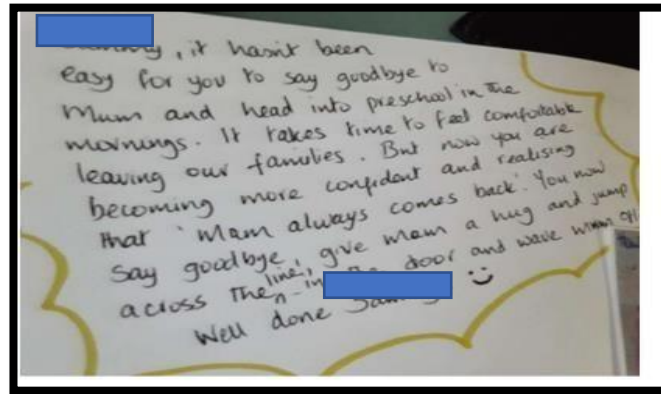 , it hasn't been
easy for you to say goodbye to
Mum and head into preschool in the
mornings. It takes time to feel comfortable
leaving our families. But now you are
becoming more confident and realising
that 'Mam always comes back'. You now
say goodbye, give mam a hug and jump
across the line, in door and wave
Well done